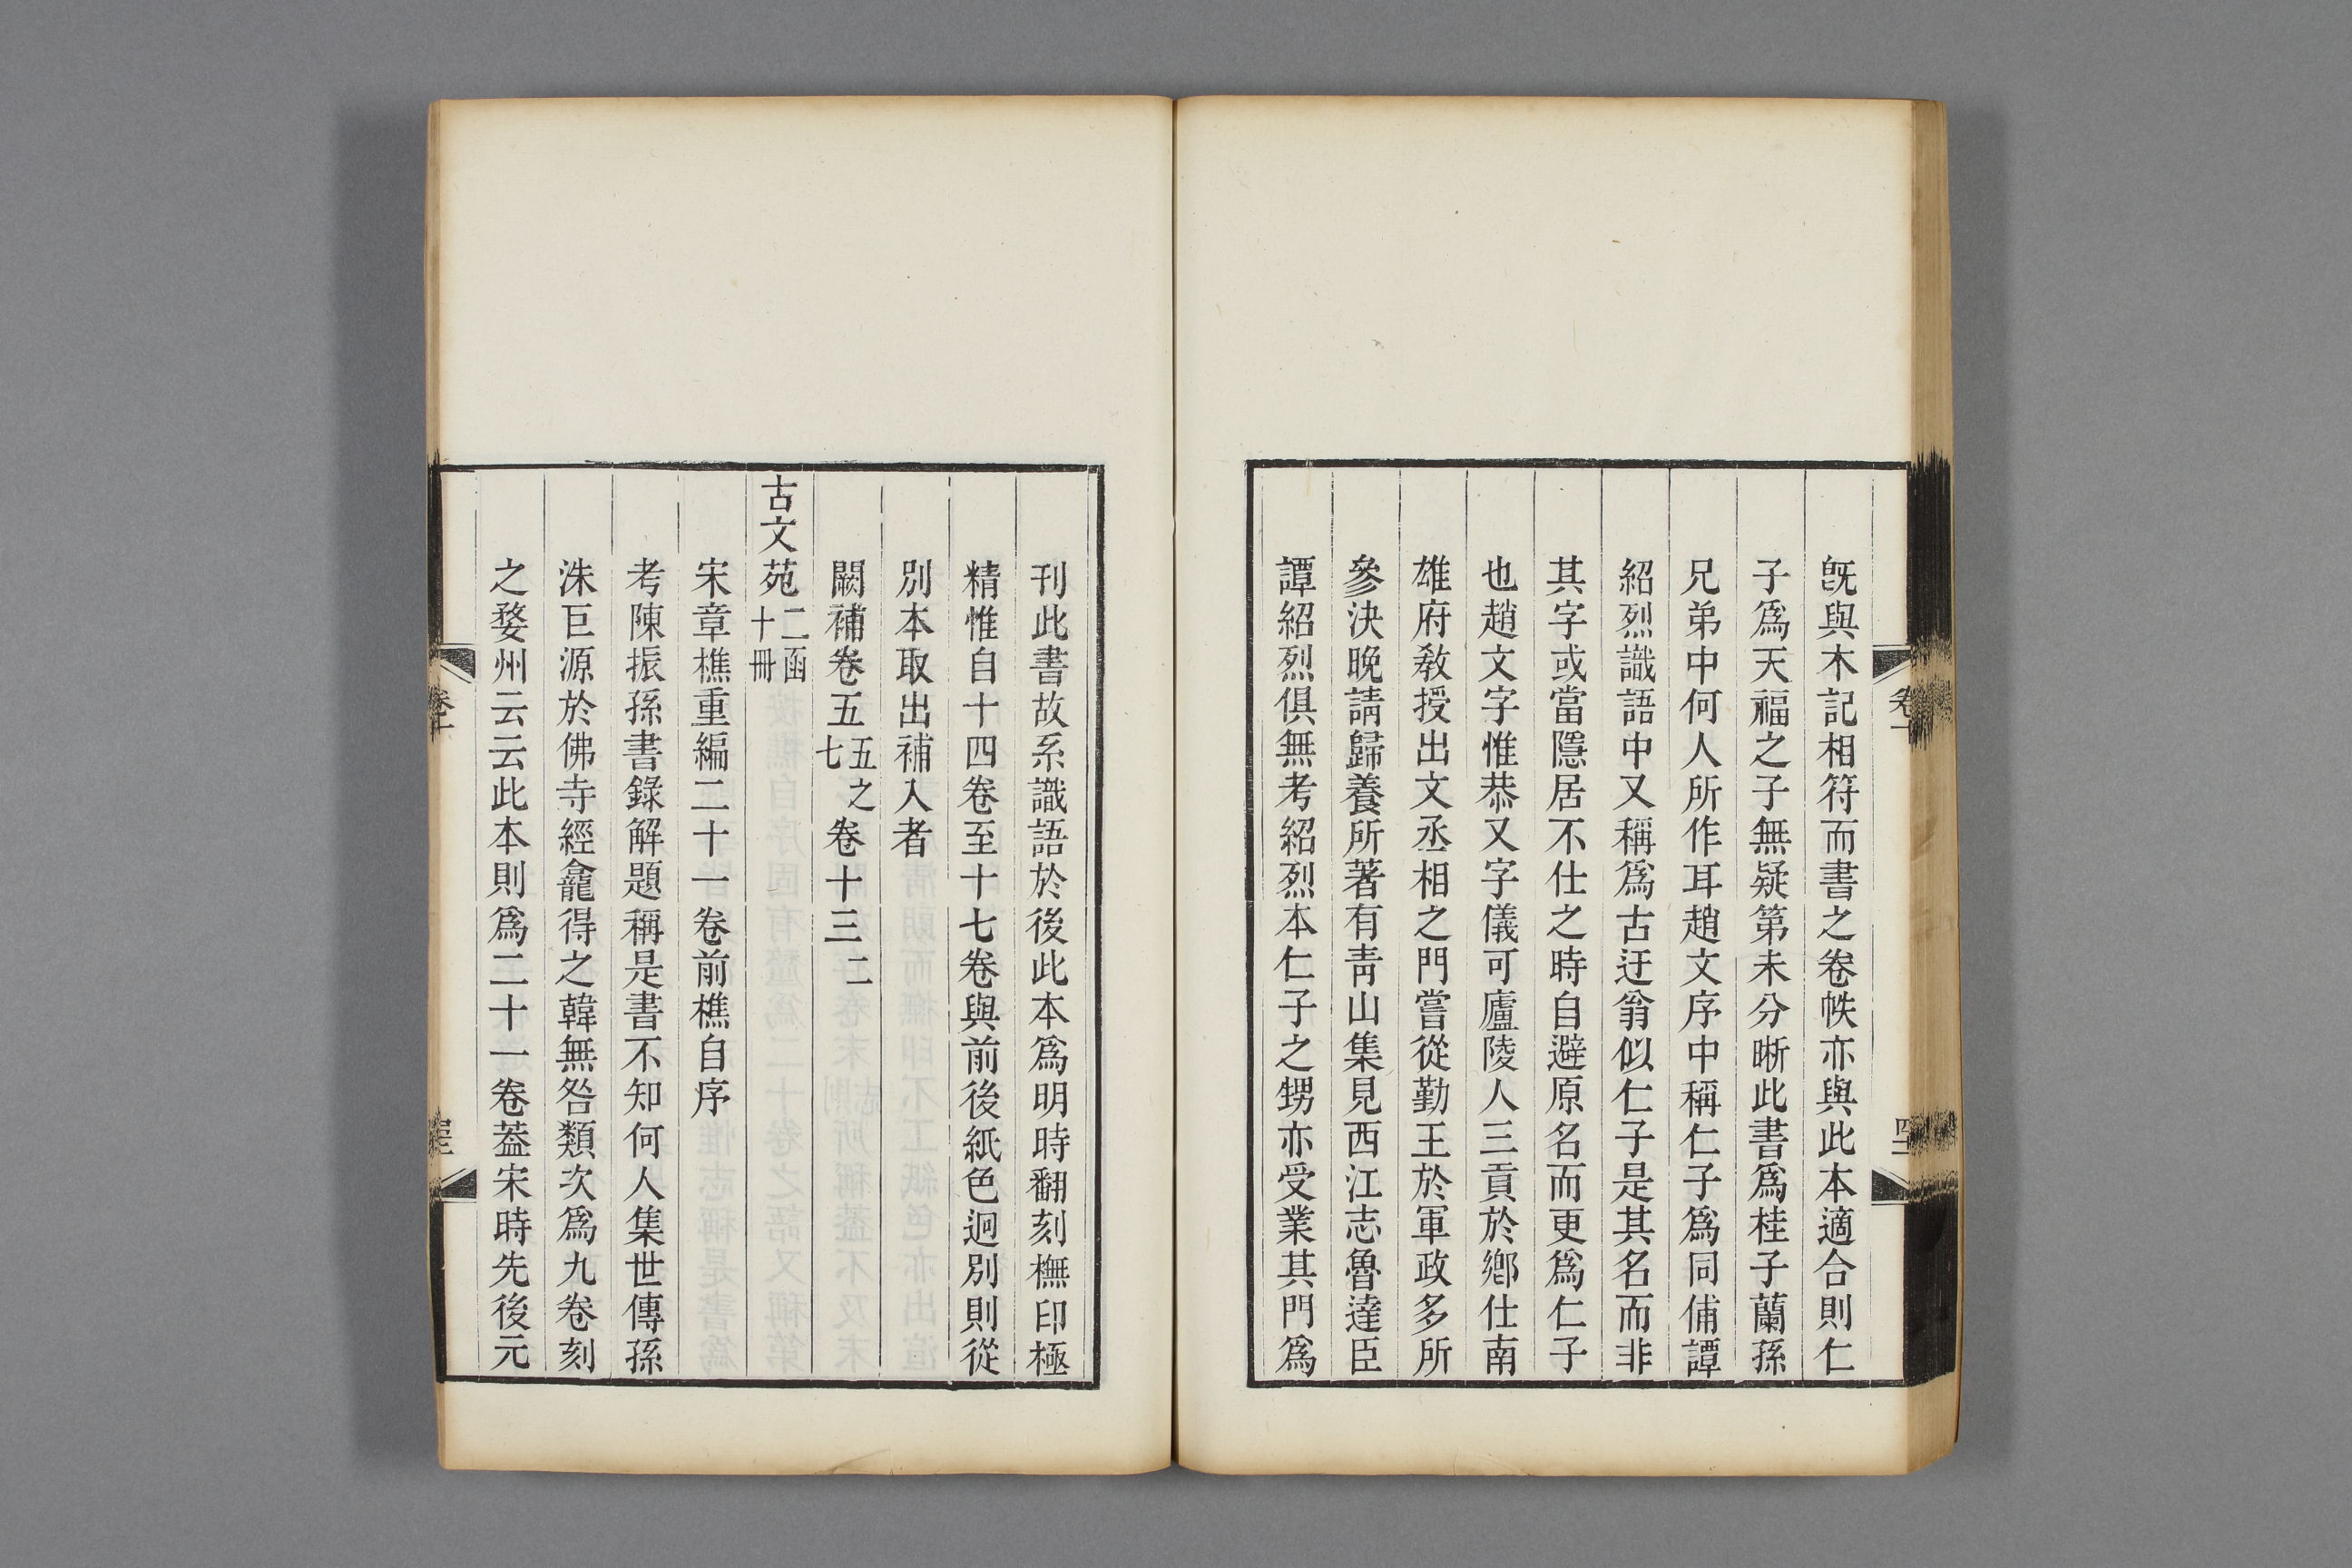 旣與木記相符而書之卷帙亦與此本適合則仁
子爲天福之子無疑第未分晰此書爲桂子蘭孫
兄弟中何人所作耳趙文序中稱仁子爲同俌譚
紹烈識語中又稱爲古迂翁似仁子是其名而非
其字或當隱居不仕之時自避原名而更爲仁子
也趙文字惟恭又字儀可廬陵人三貢於鄉仕南
雄府敎授出文丞相之門嘗從勤王於軍政多所
參決晚請歸養所著有靑山集見西江志魯達臣
譚紹烈俱無考紹烈本仁子之甥亦受業其門爲
刊此書故系識語於後此本爲明時翻刻橅印極
精惟自十四卷至十七卷與前後紙色迥別則從
別本取出補入者
闕補卷五五之七卷十三二
古文苑二函十冊
宋章樵重編二十一卷前樵自序
考陳振孫書錄解題稱是書不知何人集世傳孫
洙巨源於佛寺經龕得之韓無咎類次爲九卷刻
之婺州云云此本則爲二十一卷葢宋時先後元